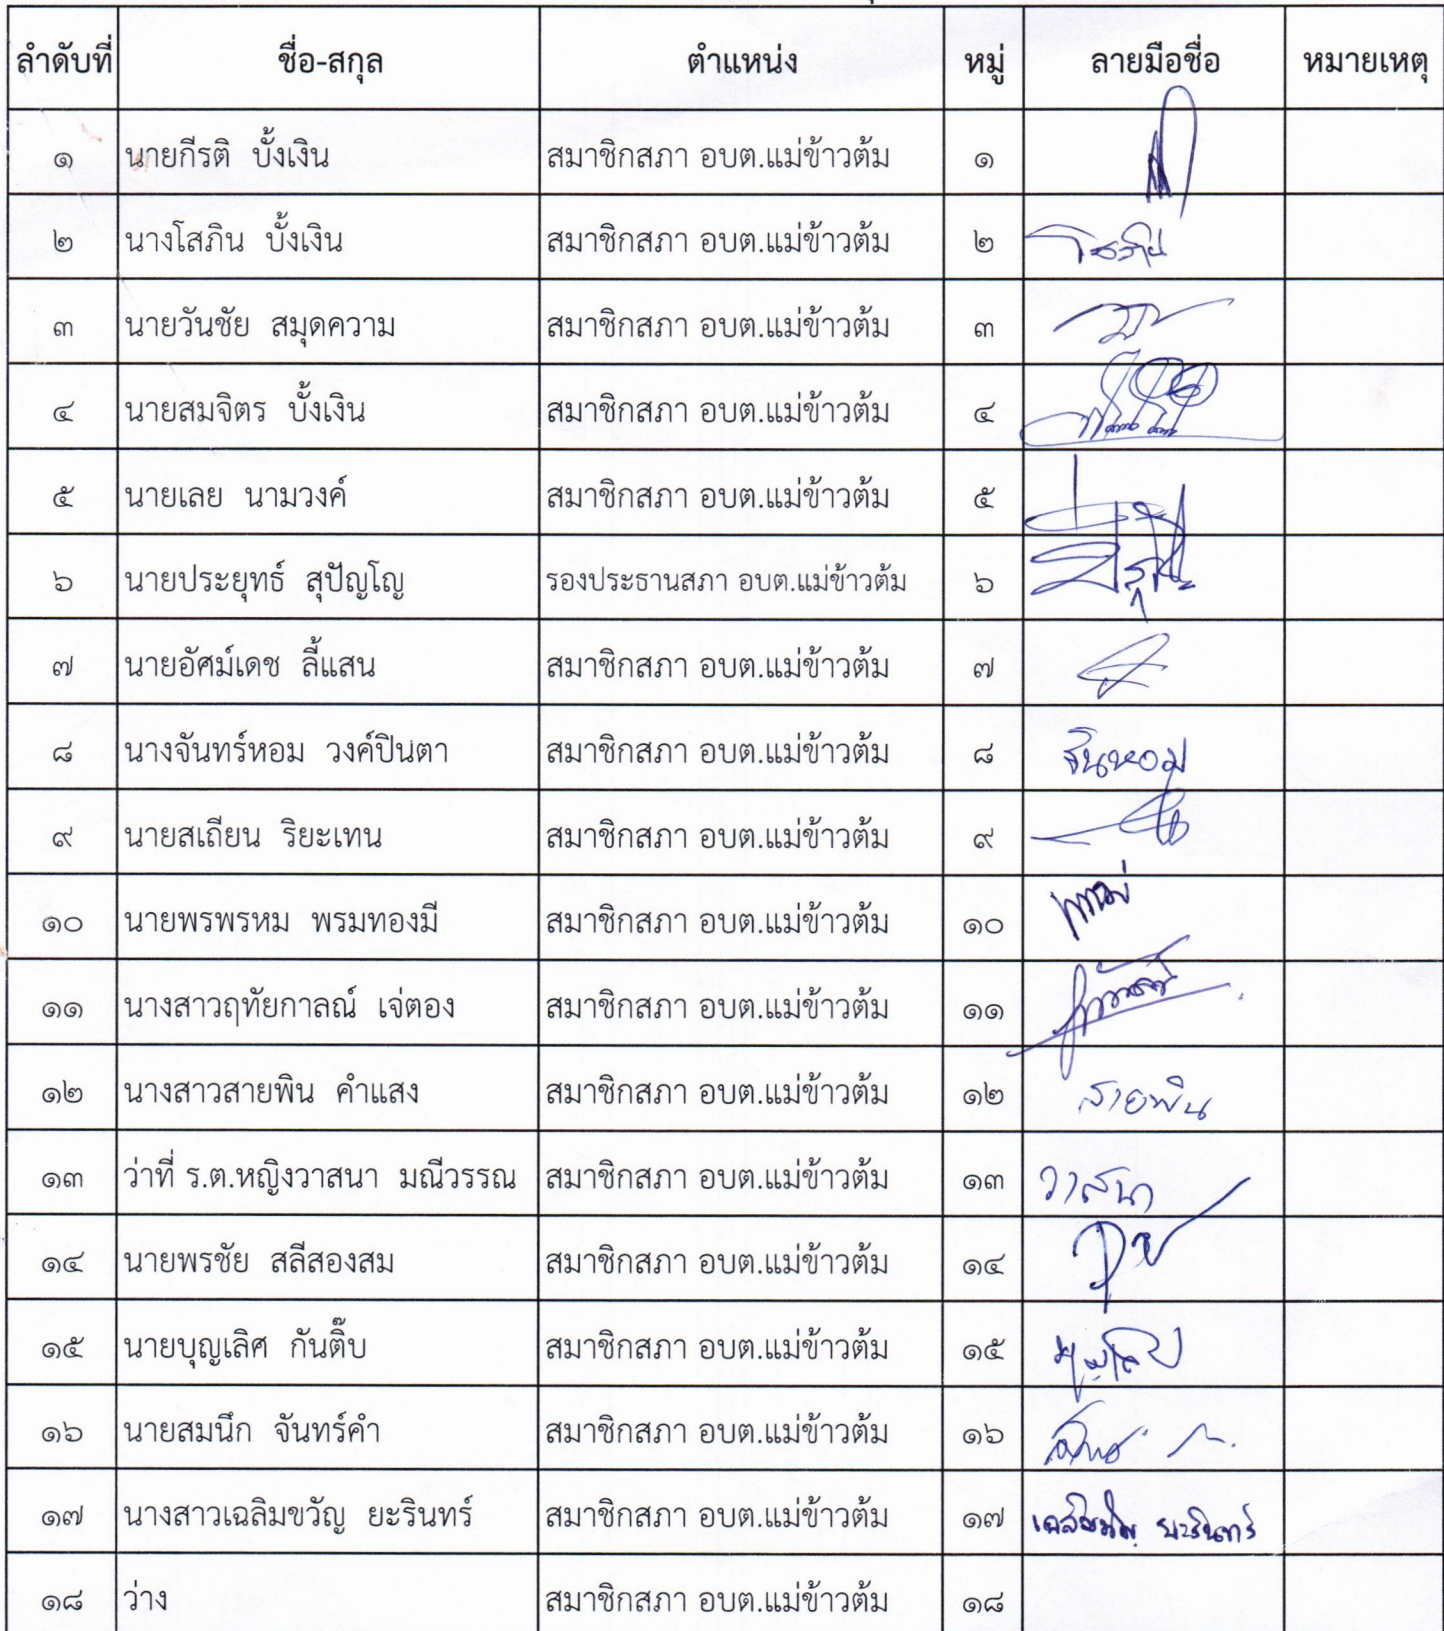 ลำดับที่ ชื่อ-สกุล ตำแหน่ง หมู่ ลายมือชื่อ หมายเหตุ
๑ นายกีรติ บั้งเงิน สมาชิกสภา อบต.แม่ข้าวต้ม ๑
๒ นางโสภิน บั้งเงิน สมาชิกสภา อบต.แม่ข้าวต้ม ๒ โสภิน
๓ นายวันชัย สมุดความ สมาชิกสภา อบต.แม่ข้าวต้ม ๓
๔ นายสมจิตร บั้งเงิน สมาชิกสภา อบต.แม่ข้าวต้ม ๔
๕ นายเลย นามวงค์ สมาชิกสภา อบต.แม่ข้าวต้ม ๕
๖ นายประยุทธ์ สุปัญโญ รองประธานสภา อบต.แม่ข้าวต้ม ๖
๗ นายอัศม์เดช ลี้แสน สมาชิกสภา อบต.แม่ข้าวต้ม ๗
๘ นางจันทร์หอม วงค์ปินตา สมาชิกสภา อบต.แม่ข้าวต้ม ๘ จันหอม
๙ นายสเถียน ริยะเทน สมาชิกสภา อบต.แม่ข้าวต้ม ๙
๑๐ นายพรพรหม พรมทองมี สมาชิกสภา อบต.แม่ข้าวต้ม ๑๐
๑๑ นางสาวฤทัยกาลณ์ เจ่ตอง สมาชิกสภา อบต.แม่ข้าวต้ม ๑๑
๑๒ นางสาวสายพิน คำแสง สมาชิกสภา อบต.แม่ข้าวต้ม ๑๒ สายพิน
๑๓ ว่าที่ ร.ต.หญิงวาสนา มณีวรรณ สมาชิกสภา อบต.แม่ข้าวต้ม ๑๓ วาสนา
๑๔ นายพรชัย สลีสองสม สมาชิกสภา อบต.แม่ข้าวต้ม ๑๔
๑๕ นายบุญเลิศ กันติ๊บ สมาชิกสภา อบต.แม่ข้าวต้ม ๑๕
๑๖ นายสมนึก จันทร์คำ สมาชิกสภา อบต.แม่ข้าวต้ม ๑๖
๑๗ นางสาวเฉลิมขวัญ ยะรินทร์ สมาชิกสภา อบต.แม่ข้าวต้ม ๑๗ เฉลิมขวัญ ยะรินทร์
๑๘ ว่าง สมาชิกสภา อบต.แม่ข้าวต้ม ๑๘